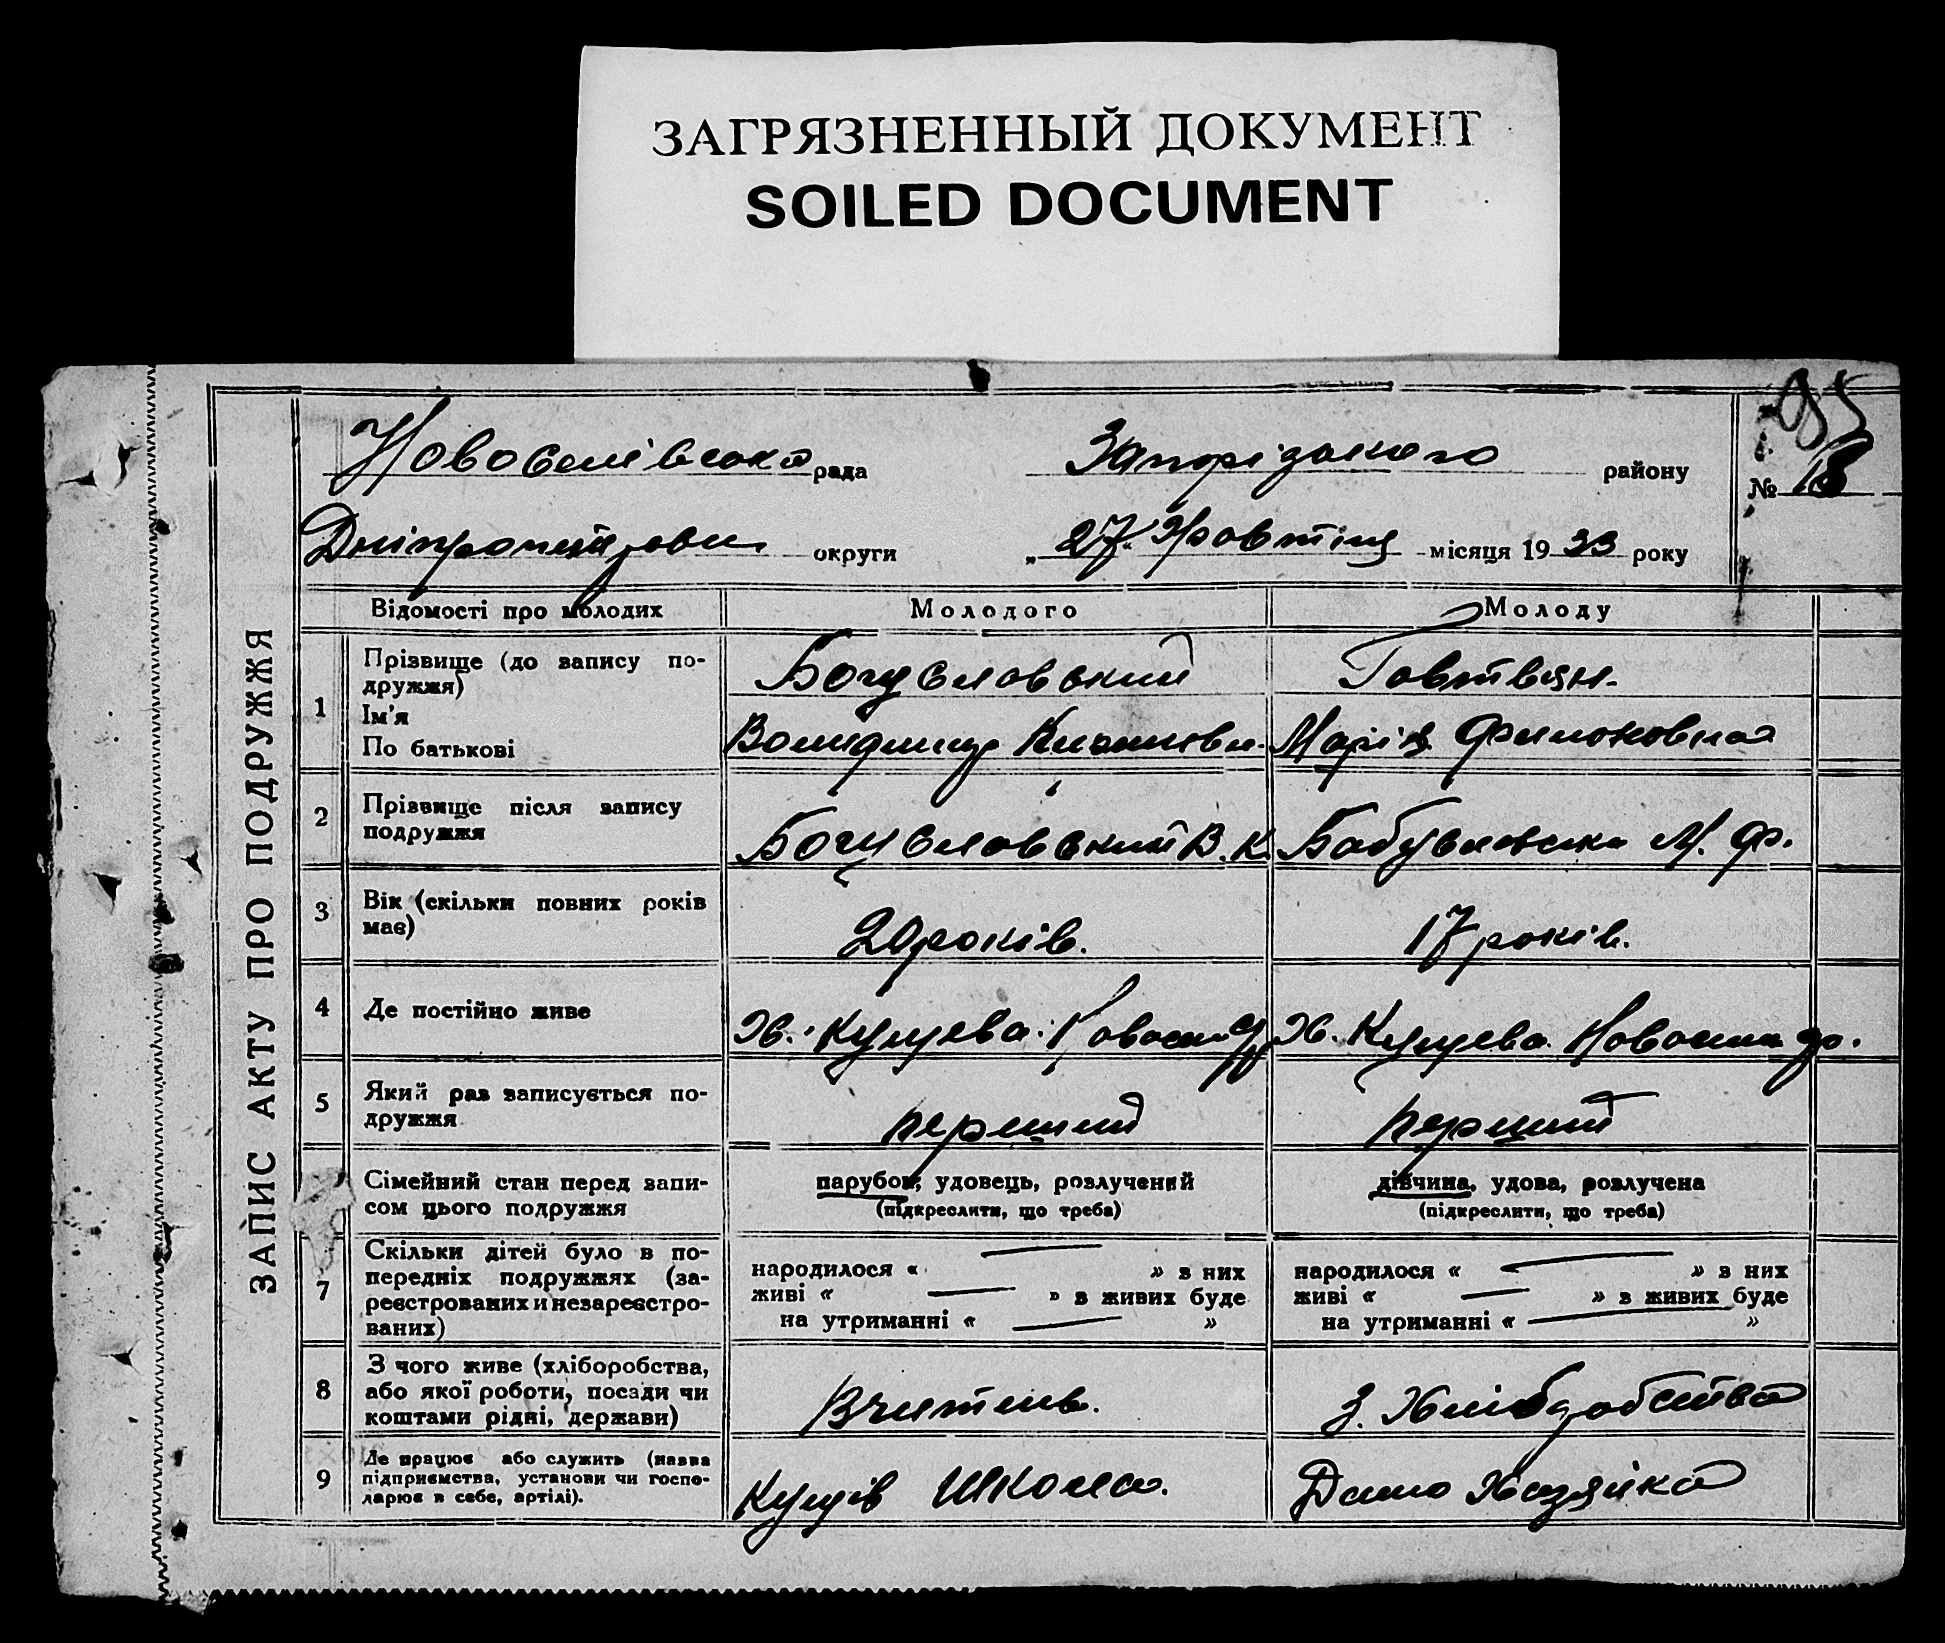 ЗАГРЯЗНЕННЫЙ ДОКУМЕНТ
SOILED DOCUMENT
95
Новоселівська рада Запорізького району № 18
Дніпропетровськ округи „27“ Жовтня місяця 1933 року
ЗАПИС АКТУ ПРО ПОДРУЖЖЯ
Відомості про молодих Молодого Молоду
1 Прізвище (до запису по-
дружжя) Богуславський Говтвян.
Ім'я
По батькові Володимир Марія
2 Прізвище після запису
подружжя Богуславський В. К. М. Ф.
3 Вік (скільки повних років
має) 20 років. 17 років.
4 Де постійно живе Хв. Кущева. Хв. Кущева.
5 Який раз записується по-
дружжя перший перший
Сімейний стан перед запи-
сом цього подружжя
парубок, удовець, розлучений
(підкреслити, що треба)
дівчина, удова, розлучена
(підкреслити, що треба)
7 Скільки дітей було в по-
передніх подружжях (за-
реєстрованих и незареєстро-
ваних)
народилося « — » з них
живі « — » з живих буде
на утриманні « — »
народилося « — » з них
живі « — » з живих буде
на утриманні « — »
8 З чого живе (хліборобства,
або якої роботи, посади чи
коштами рідні, держави) Вчитель. З. Хліборобства
9 Де працює або служить (назва
підприємства, установи чи госпо-
дарює в себе, артілі). Кущів школа. Домо Хазяйка